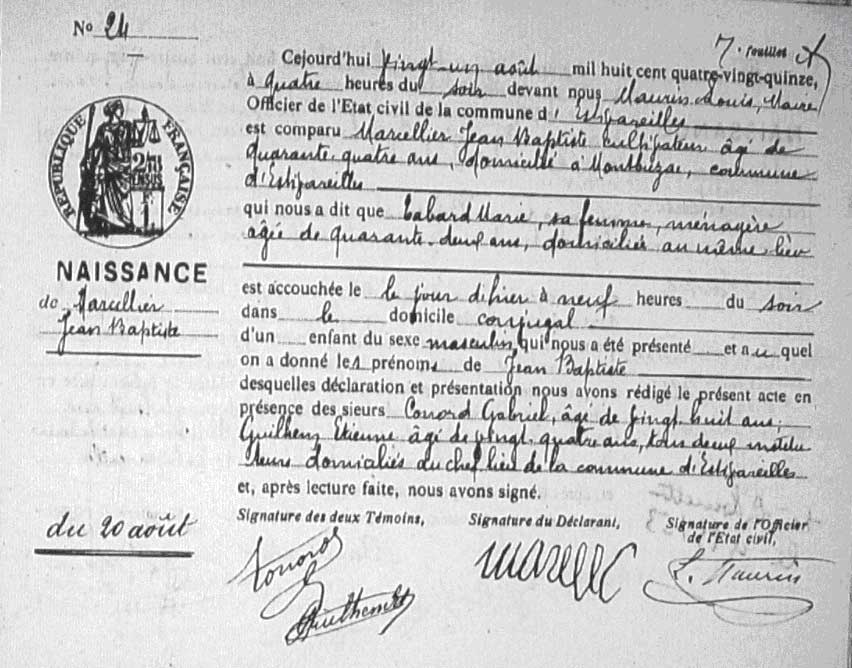 No 24
7. feuillet
Cejourd'hui vingt-un août mil huit cent quatre-vingt-quinze,
à quatre heures du soir devant nous Maurin Louis, Maire
Officier de l'Etat civil de la commune d'Estivareilles
est comparu Marcellier Jean Baptiste cultivateur âgé de
quarante-quatre ans, domicilié à Montbuzac, commune
d'Estivareilles
qui nous a dit que Tabard Marie, sa femme, ménagère
âgée de quarante-deux ans, domiciliés au même lieu
est accouchée le le jour d'hier à neuf heures du soir
dans le domicile conjugal
d'un enfant du sexe masculin qui nous a été présenté et au quel
on a donné les prénoms de Jean Baptiste
desquelles déclaration et présentation nous avons rédigé le présent acte en
présence des sieurs Conord Gabriel, âgé de vingt-huit ans;
Guilhem Etienne âgé de vingt-quatre ans, tous deux institu
teurs domiciliés au chef lieu de la commune d'Estivareilles
et, après lecture faite, nous avons signé.
Signature des deux Témoins, Signature du Déclarant, Signature de l'Officier
de l'Etat civil,
Conord
L. Maurin
RÉPUBLIQUE FRANÇAISE
NAISSANCE
de Marcellier
Jean Baptiste
du 20 août